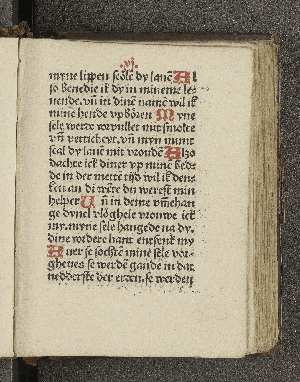 vi.
myne lippen scolē dy lauē Al
so benedie ik dy in mineme le-
nende. vn̄ in dinē namē wil ik
mine hende vp bören Myne
sele werde vorvullet mit smolte
vn̄ vetticheyt. vn̄ myn munt
scal dy lauē mit vrouden Alzo
dachte ick diner vp mine bed-
de in der mettē tijd wil ik dens
ken an di wēte du werest min
helper Un̄ in deme vmehan
ge dynel vlöghele vrouwe ick
my. myne sele hangede na dy.
dine vordere hant entfenk my
Auer se sochtē mine sele vor-
gheues se werdē gande in dat
nedderste der erden. se werden